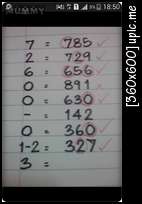 18:50
MUMMY
7 = 785
2 = 729
6 = 656
0 = 891
0 = 630
- = 142
0 = 360
1-2 = 327
3 =
[360x600] upic.me